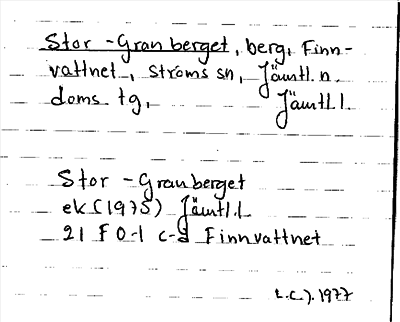 Stor-Granberget, berg, Finn-
vattnet, Ströms sn, Jämtl. n.
doms. tg, Jämtl. l.
Stor-Granberget
ek (1975) Jämtl. l.
21 F 0-1 c-d Finnvattnet
1977